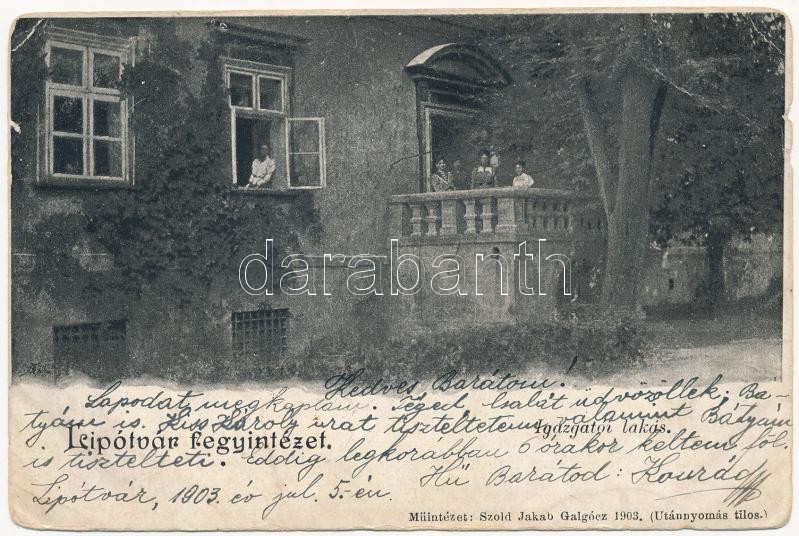 darabanth
Kedves Barátom!
Lapodat megkaptam. Téged, családot üdvözöllek. Ba-
tyám is. Kiss Károly urat tiszteltetem valamint Bátyám
Lipótvár fegyintézet.
Igazgatói lakás.
is tisztelteti. Eddig legkorábban 6 órakor keltem föl.
Hű Barátod: Konrád
Lipótvár, 1903. év jul. 5-én.
Müintézet: Szold Jakab Galgócz 1903. (Utánnyomás tilos.)